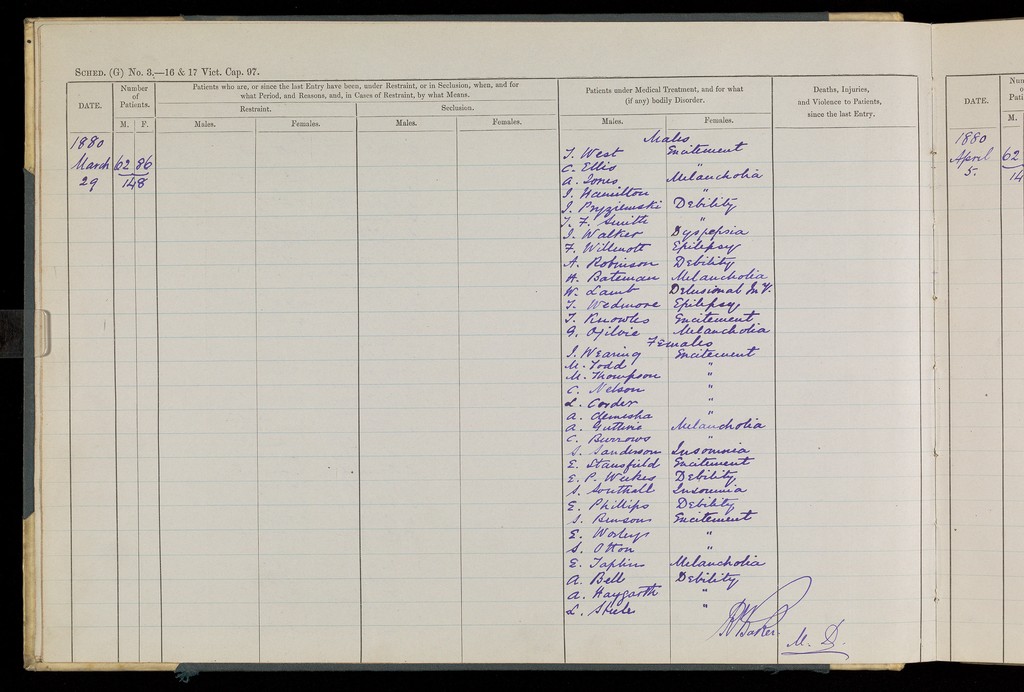 SCHED. (G) No. 3.—16 & 17 Vict. Cap. 97.
DATE.
Number of Patients.
M. F.
Patients who are, or since the last Entry have been, under Restraint, or in Seclusion, when, and for
what Period, and Reasons, and, in Cases of Restraint, by what Means.
Restraint.
Seclusion.
Males. Females. Males. Females.
Patients under Medical Treatment, and for what
(if any) bodily Disorder.
Males. Females.
Deaths, Injuries,
and Violence to Patients,
since the last Entry.
1880
March 62 86
29 148
Males
T. West Excitement
C. Ellis "
A. Jones Melancholia
J. Hamilton "
J. Pryzilewski Debility
T. F. Smith "
J. Walker Dyspepsia
F. Willmott Epilepsy
A. Robinson Debility
H. Bateman Melancholia
W. Lamb Delusional In Y.
T. Wedmore Epilepsy
T. Knowles Excitement
G. Ogilvie Melancholia
Females
J. Wearing Excitement
M. Todd "
M. Thompson "
C. Nelson "
L. Corder "
A. "
A. Guthrie Melancholia
C. Burrows "
S. Sanderson Insomnia
E. Stansfield Excitement
E. P. Weekes Debility
S. Southall Insomnia
E. Phillips Debility
S. Benson Excitement
E. Worleys "
S. Otton "
E. Taplin Melancholia
A. Bell Debility
A. Haygarth "
L. Steele "
Baker M.D.
DATE.
M.
1880
April 62
5. 14